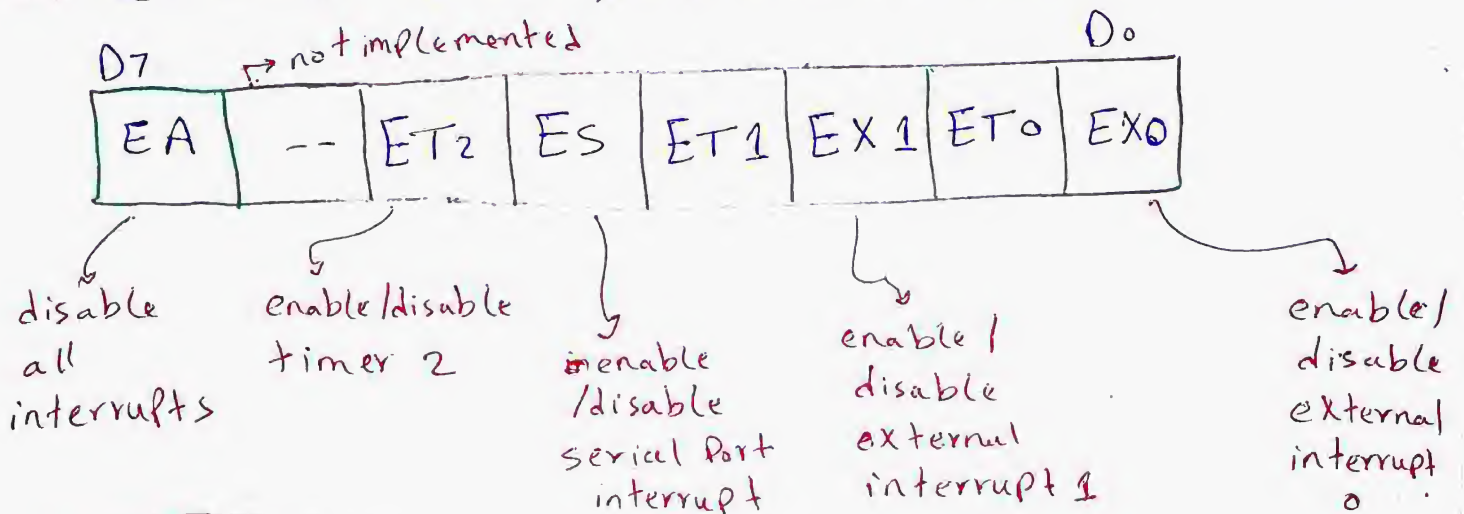 not implemented
D7 D0
EA -- ET2 ES ET1 EX1 ET0 EX0
disable
all
interrupts
enable/disable
timer 2
enable
/disable
serial Port
interrupt
enable/
disable
external
interrupt 1
enable/
disable
external
interrupt
0